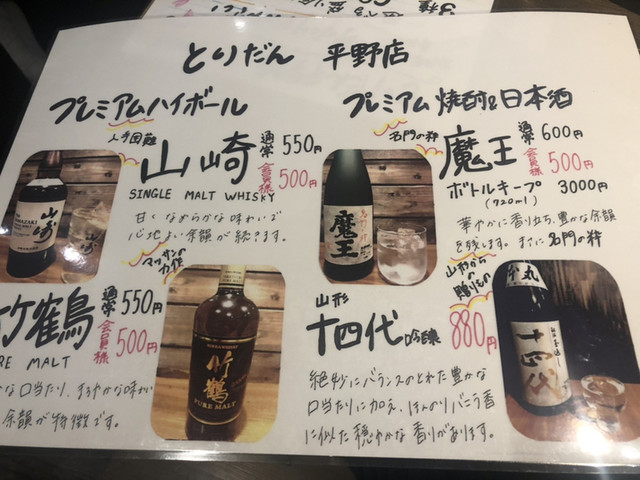 とりだん 平野店
プレミアムハイボール
入手困難
山崎
通常 550円
会員様 500円
SINGLE MALT WHISKY
甘くなめらかな味わいで
心地よい余韻が続きます。
山崎
マッサンの力作
竹鶴
通常 550円
会員様 500円
PURE MALT
な口当たり、まろやかな味わい
余韻が特徴です。
竹鶴
PURE MALT
プレミアム焼酎&日本酒
名門の粋
魔王
通常 600円
会員様 500円
ボトルキープ 3000円
(720ml)
華やかに香り立ち、豊かな余韻
を残します。まさに名門の粋
魔王
山形からの
贈りもの
山形
十四代 吟醸 880円
絶妙にバランスのとれた豊かな
口当たりに加え、ほんのりバニラ香
に似た穏やかな香りがあります。
十四代